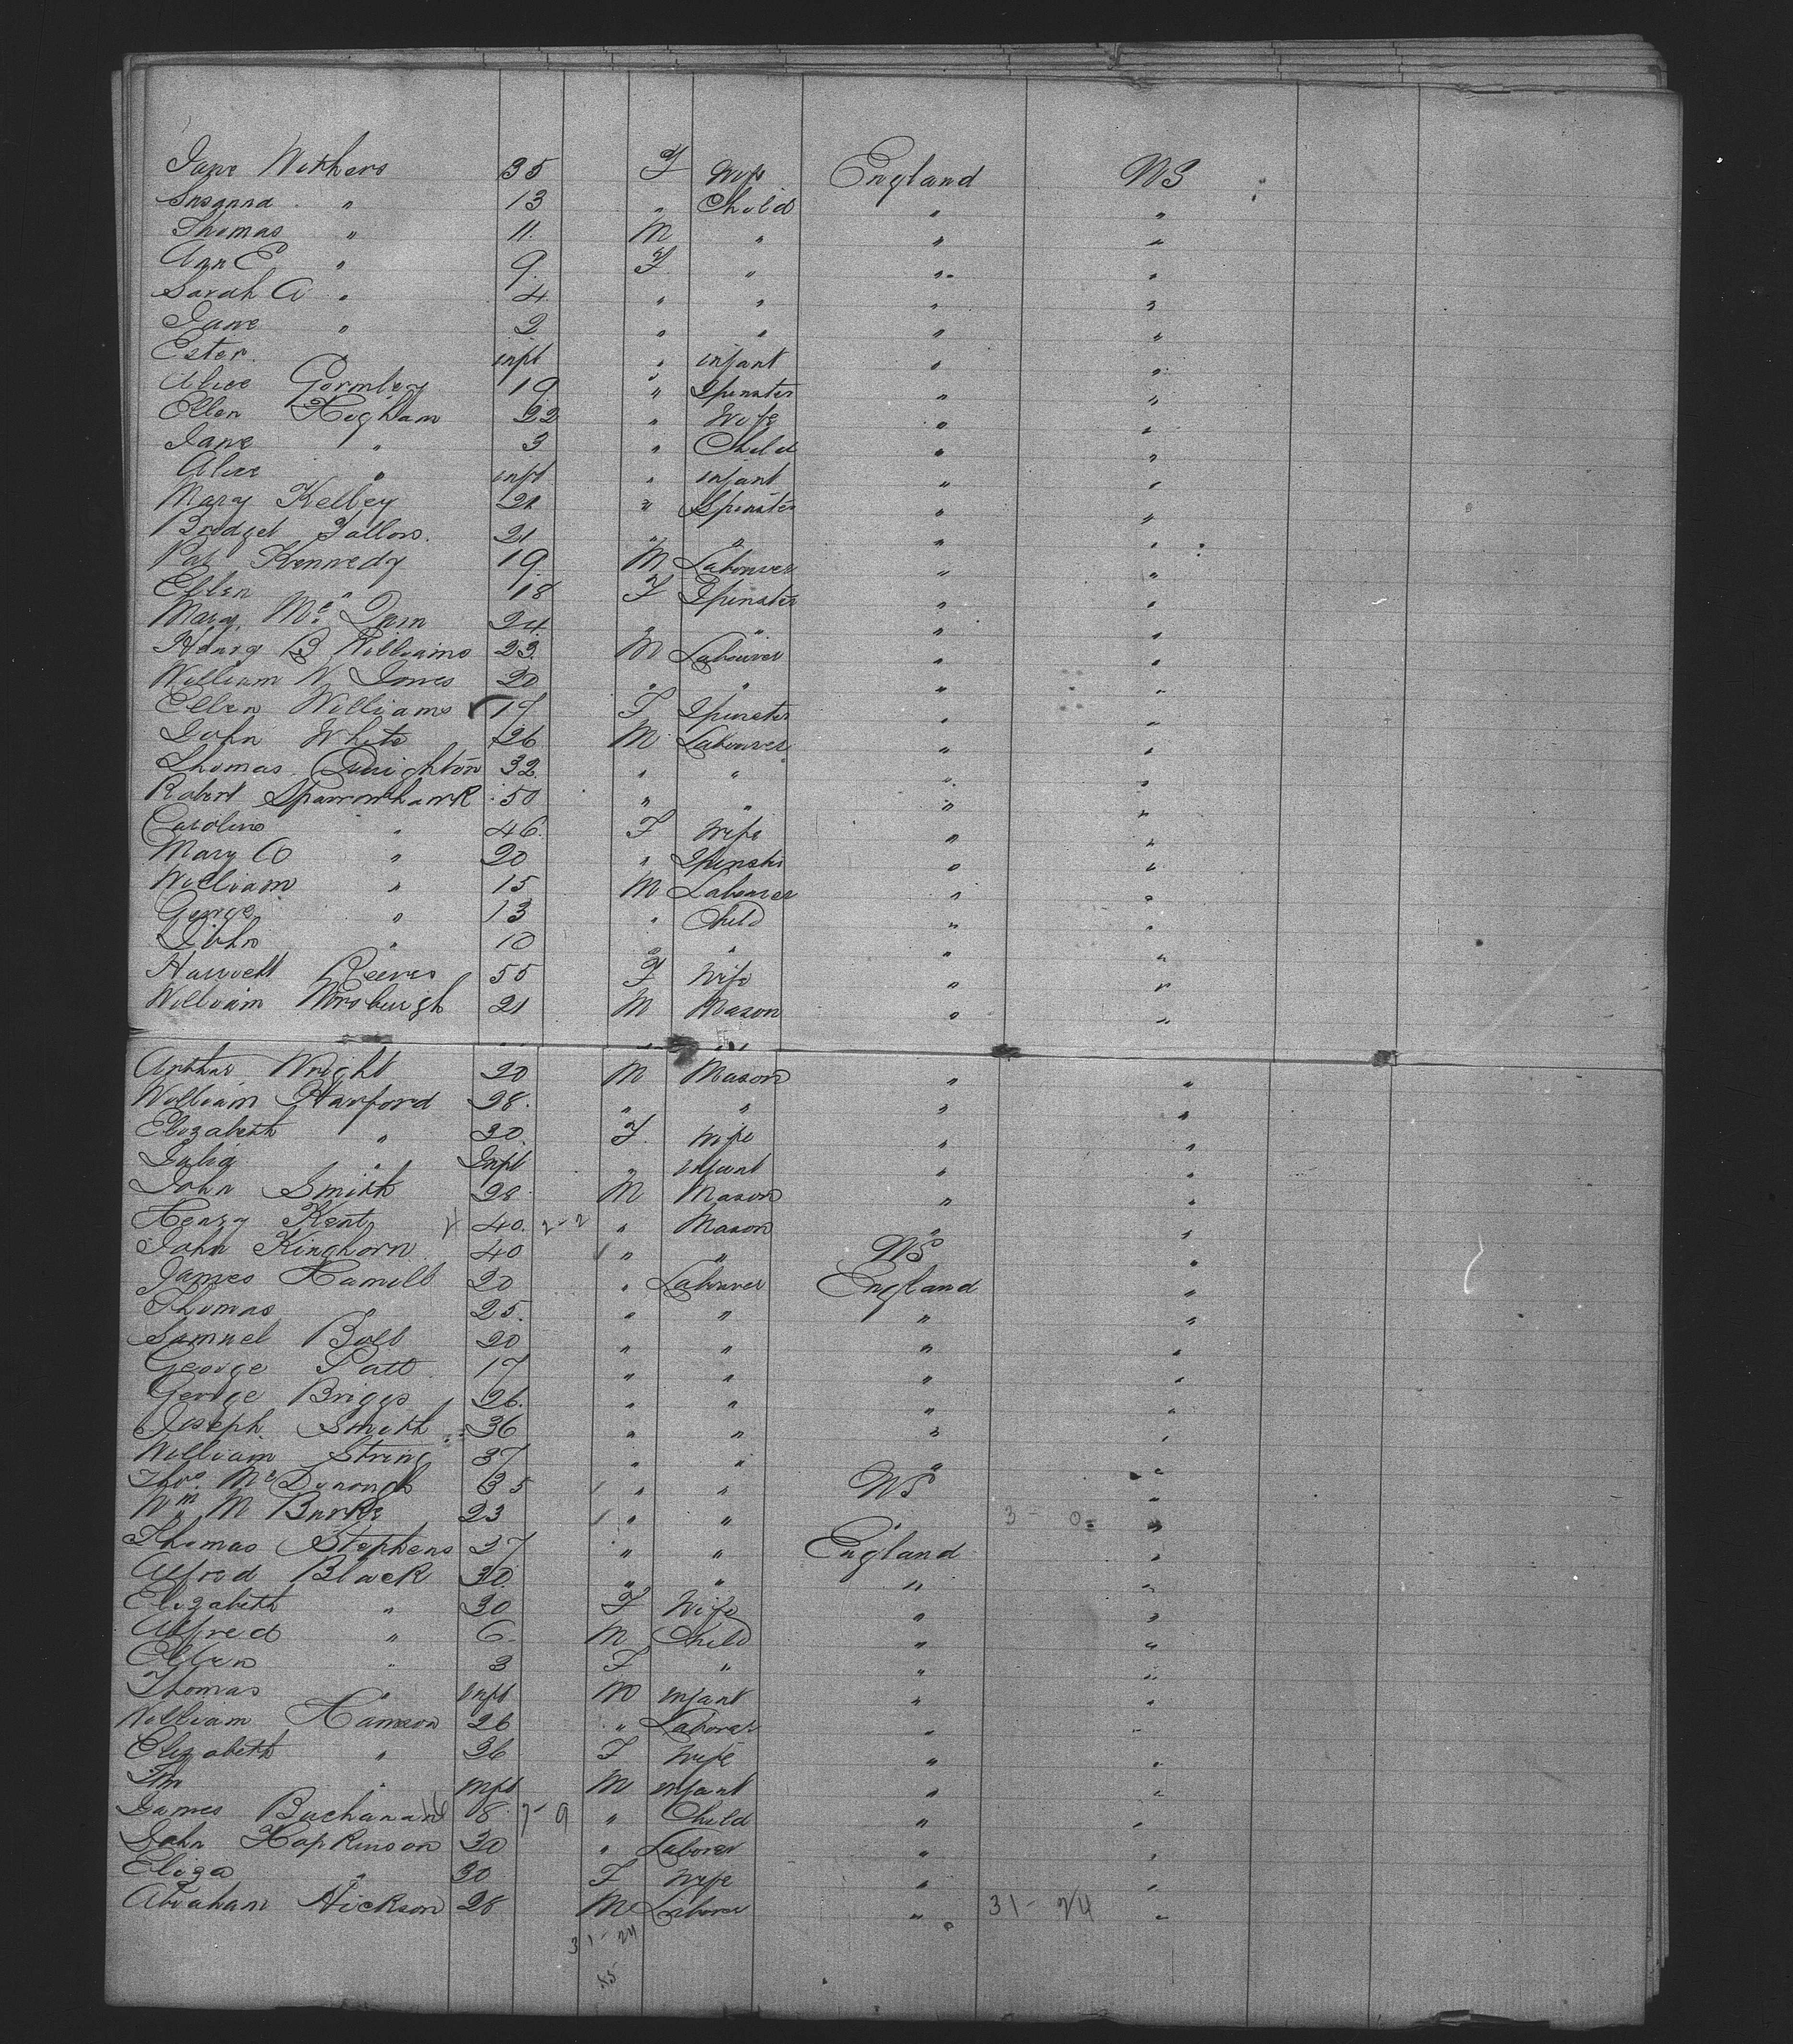 Jane Withers 35 F Wife England US
Susanna " 13 " Child " "
Thomas " 11 M " " "
Ann E " 9 F " " "
Sarah A " 4 " " " "
Jane " 2 " " " "
Ester inft " infant " "
Alice Gormley 19 " Spinster " "
Ellen Higham 22 " Wife " "
Jane " 3 " Child " "
Alice " inft " infant " "
Mary Kelley 21 " Spinster " "
Bridget Fallors 21 " " " "
Pat Kennedy 19 M Labourer " "
Ellen " 18 F Spinster " "
Mary Mc 24 " " " "
Henry B Williams 23 M Labourer " "
William W Jones 20 " " " "
Ellen Williams 17 F Spinster " "
John White 26 M Labourer " "
Thomas 32 " " " "
Robert Sparrowhawk 50 " " " "
Caroline " 46 F Wife " "
Mary A " 20 " Spinster " "
William " 15 M Labourer " "
George " 13 " Child " "
John " 10 " " " "
Harriett Reeves 55 F Wife " "
William 21 M Mason " "
Arthur Wright 20 M Mason " "
William Harford 28 " " " "
Elizabeth " 30 F Wife " "
Julia " Inft " infant " "
John Smith 28 M Mason " "
Henry Kent 40 2-2 " Mason " "
John Kinghorn 40 " " US "
James Hamill 20 " Labourer England "
Thomas 25 " " " "
Samuel Bull 20 " " " "
George Patt 17 " " " "
George Briggs 26 " " " "
Joseph Smith 36 " " " "
William String 37 " " " "
Thos Mc Donough 35 " " US "
Wm M Burke 23 " " " 3 - 0 "
Thomas Stephens 27 " " England "
Alfred Black 30 " " " "
Elizabeth " 30 F Wife " "
Alfred " 6 M Child " "
Ellen " 3 F " " "
Thomas " Inft M infant " "
William Hamson 26 " Laborer " "
Elizabeth " 26 F Wife " "
Wm " Inft M infant " "
James Buchanan 8 7-9 " Child " "
John Hopkinson 30 " Laborer " "
Eliza " 30 F Wife " "
Abraham Hickson 28 M Laborer " 31 - 24 "
31 - 24